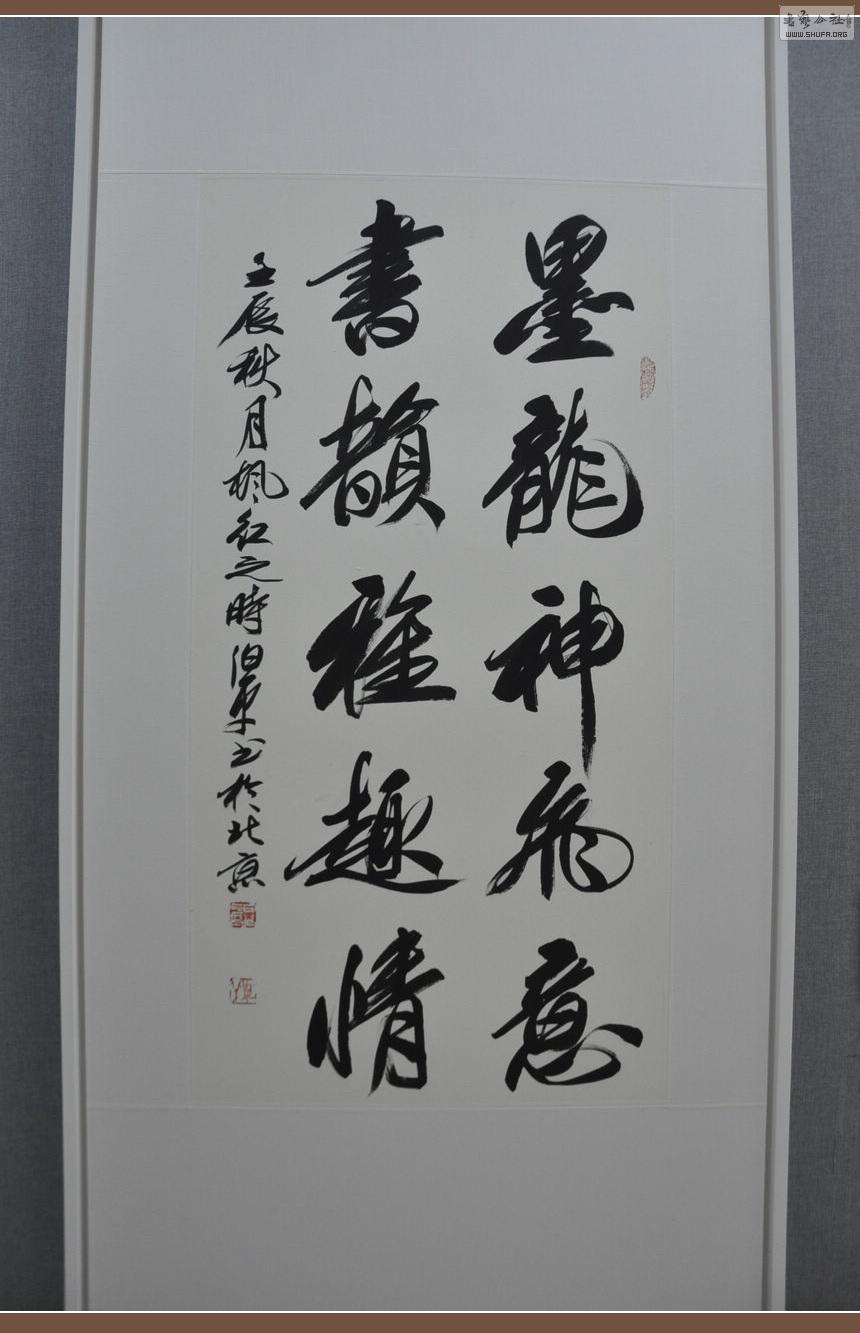 墨龍神飛意
書韻雅趣情
壬辰秋月楓紅之時泊東书於北京
書藝公社
WWW.SHUFA.ORG